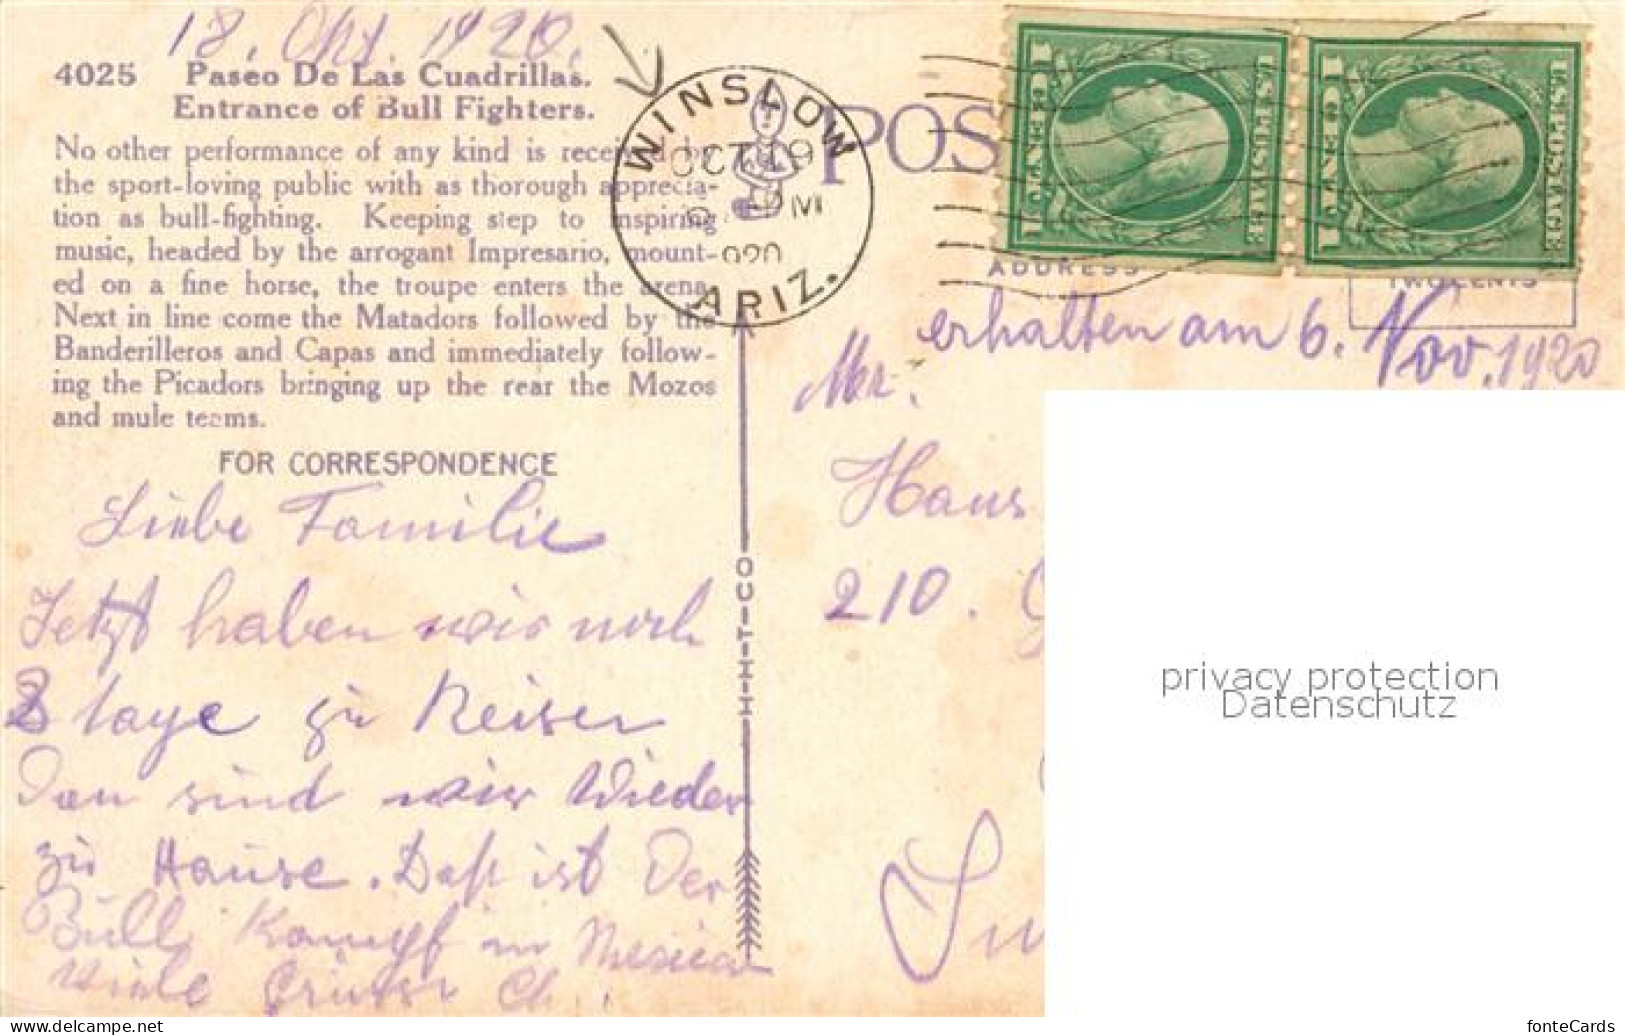 18. Okt. 1920.
4025 Paseo De Las Cuadrillas.
Entrance of Bull Fighters.
No other performance of any kind is received by
the sport-loving public with as thorough apprecia-
tion as bull-fighting. Keeping step to inspiring
music, headed by the arrogant Impresario, mount-
ed on a fine horse, the troupe enters the arena.
Next in line come the Matadors followed by the
Banderilleros and Capas and immediately follow-
ing the Picadors bringing up the rear the Mozos
and mule teams.
FOR CORRESPONDENCE
Liebe Familie
Jetzt haben wir noch
8 tage zu Reisen
Dan sind wir Wieder
zu Hause. Daß ist Der
Bull Kampf in Mexico
viele Grüsse Ch.
H-H-T-CO
WINSLOW
OCT 19
PM
920
ARIZ.
POS
U.S. POSTAGE
1 CENT 1
U.S. POSTAGE
1 CENT 1
ADDRESS
TWO CENTS
erhalten am 6. Nov. 1920
Mr.
Hans
210.
privacy protection
Datenschutz
https://www.delcampe.net
fonteCards